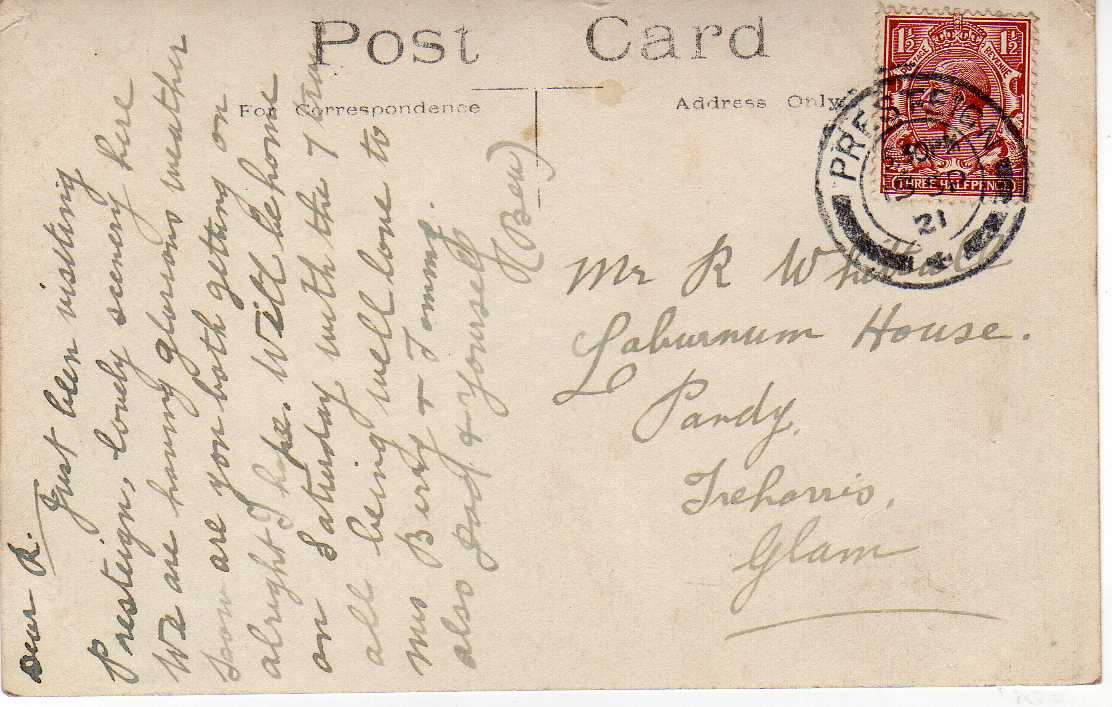 Post Card
For Correspondence
Address Only
1½ 1½
POSTAGE REVENUE
THREE HALFPENCE
PRESTEIGN
21
Dear R.
Just been visiting
Presteign, lovely scenery here
We are having glorious weather
how are you both getting on
alright I hope. Will be home
on Saturday with the 7 train
all being well love to
Mrs Berry & Tommy.
also Dad & yourself
(Ben)
Mr R Whittall
Laburnum House.
Pandy,
Treharris,
Glam